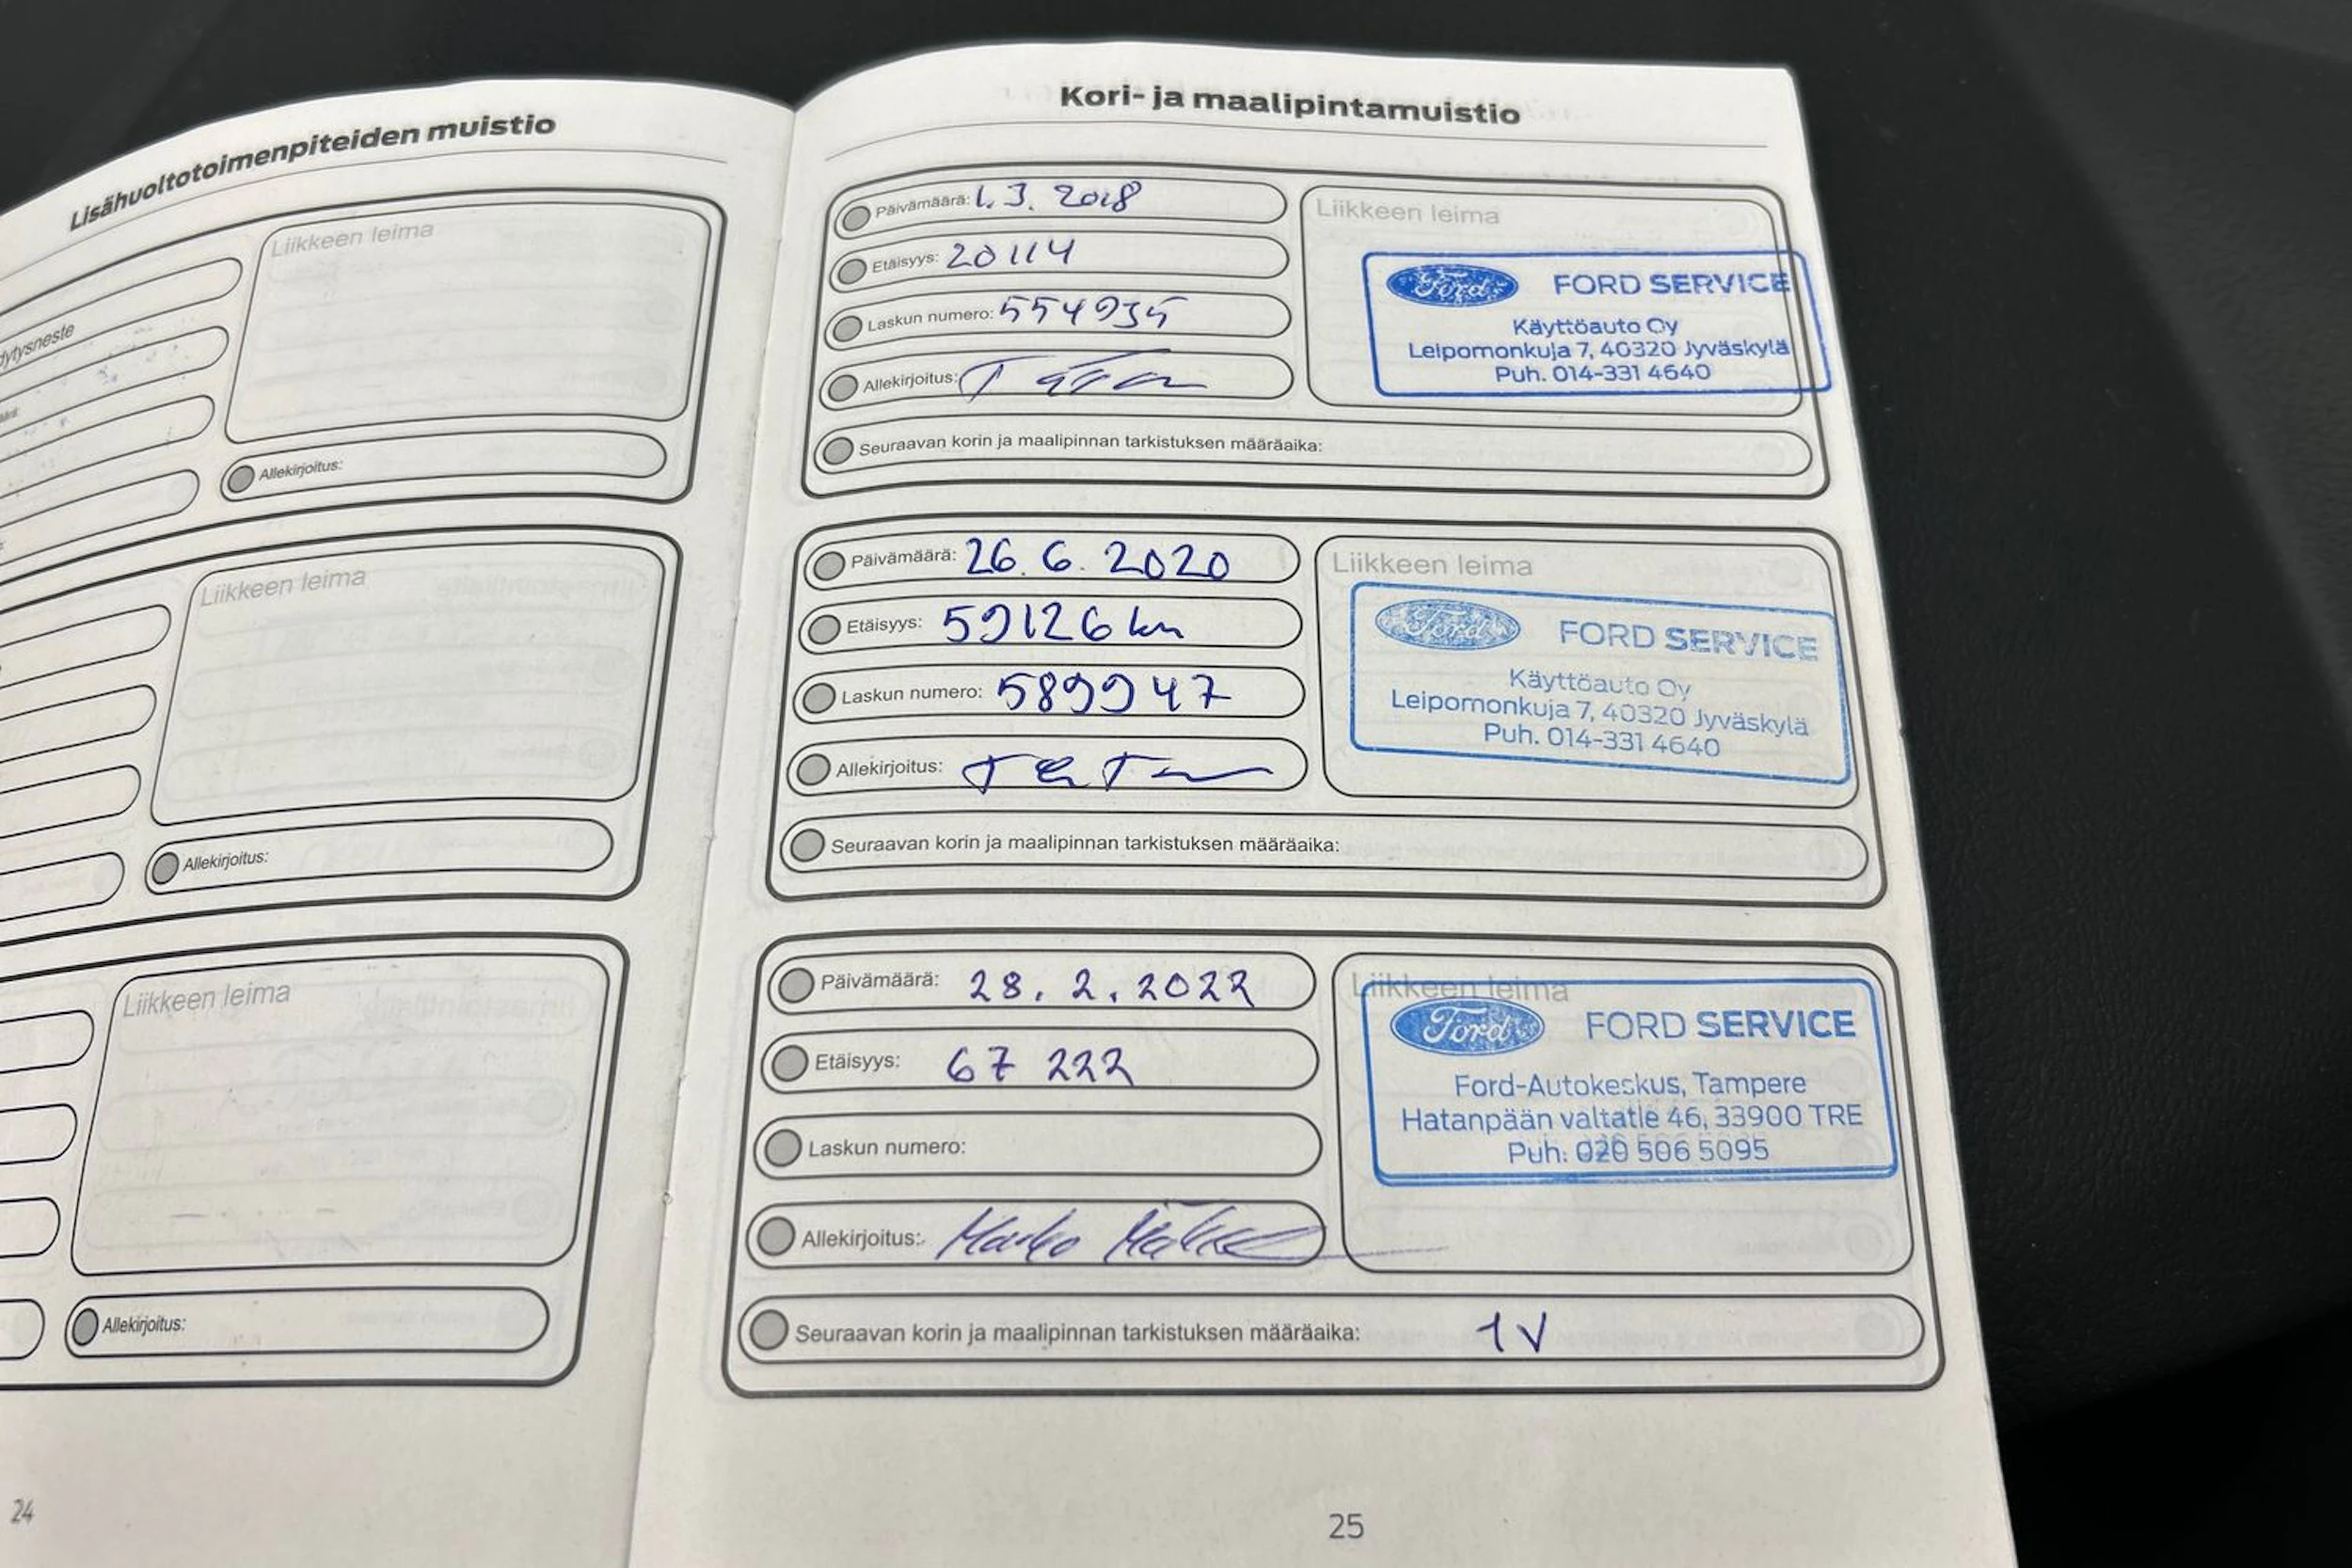 Lisähuoltotoimenpiteiden muistio
Liikkeen leima
Allekirjoitus:
Liikkeen leima
Allekirjoitus:
Liikkeen leima
Allekirjoitus:
24
Kori- ja maalipintamuistio
Päivämäärä: 1.3.2018
Etäisyys: 20114
Laskun numero: 554935
Allekirjoitus:
Liikkeen leima
Ford FORD SERVICE
Käyttöauto Oy
Leipomonkuja 7, 40320 Jyväskylä
Puh. 014-331 4640
Seuraavan korin ja maalipinnan tarkistuksen määräaika:
Päivämäärä: 26.6.2020
Etäisyys: 59126 km
Laskun numero: 589947
Allekirjoitus:
Liikkeen leima
Ford FORD SERVICE
Käyttöauto Oy
Leipomonkuja 7, 40320 Jyväskylä
Puh. 014-331 4640
Seuraavan korin ja maalipinnan tarkistuksen määräaika:
Päivämäärä: 28.2.2022
Etäisyys: 67 222
Laskun numero:
Allekirjoitus: Marko
Liikkeen leima
Ford FORD SERVICE
Ford-Autokeskus, Tampere
Hatanpään valtatie 46, 33900 TRE
Puh. 020 506 5095
Seuraavan korin ja maalipinnan tarkistuksen määräaika: 1 V
25